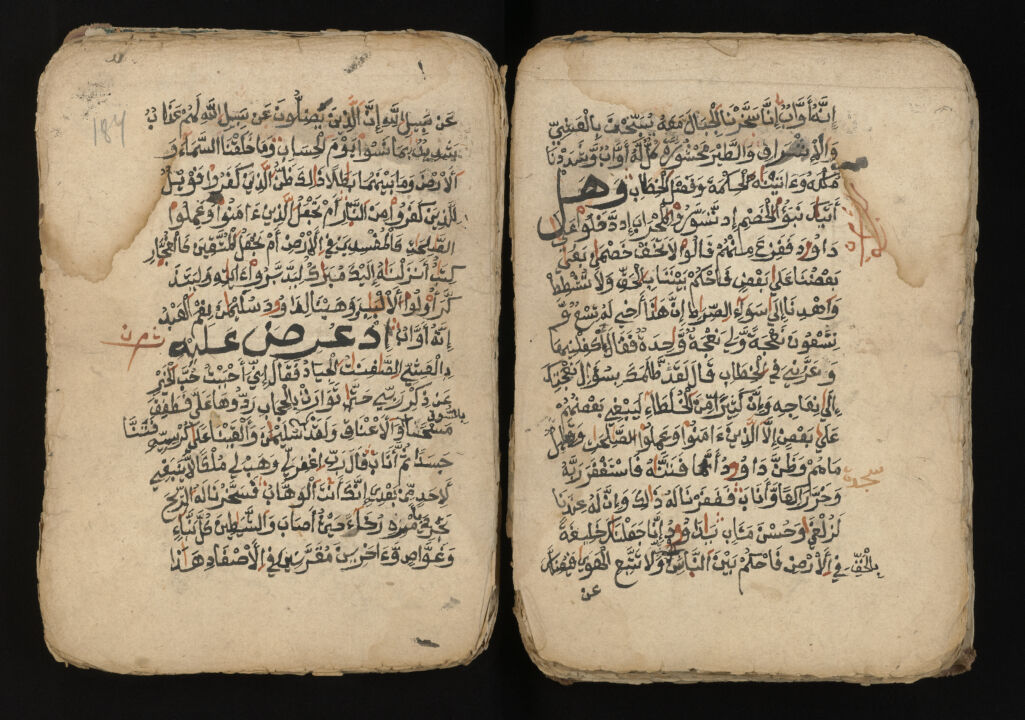 إنه أواب إنا سخرنا الجبال معه يسبحن بالعشي
والاشراق والطير محشورة كل له أواب وشددنا
ملكه وءاتينه الحكمة وفصل الخطاب وهل
أتيك نبؤا الخصم إذ تسوروا المحراب إذ دخلوا على
داود ففزع منهم قالوا لا تخف خصمن بغى
بعضنا على بعض فاحكم بيننا بالحق ولا تشطط
واهدنا إلى سواء الصراط إن هذا أخي له تسع و
تسعون نعجة ولي نعجة وحدة فقال أكفلنيها
وعزني في الخطاب قال لقد ظلمك بسؤال نعجتك
إلى نعاجه وإن كثيرا من الخلطاء ليبغي بعضهم
على بعض إلا الذين ءامنوا وعملوا الصلحت وقليل
ما هم وظن داود أنما فتنه فاستغفر ربه
وخر راكعا وأناب فغفرنا له ذلك وإن له عندنا
لزلفى وحسن مئاب يداود إنا جعلنك خليفة
في الأرض فاحكم بين الناس بالحق ولا تتبع الهوى فيضلك
عن
سجدة
عن سبيل الله إن الذين يضلون عن سبيل الله لهم عذاب
شديد بما نسوا يوم الحساب وما خلقنا السماء و
الارض وما بينهما بطلا ذلك ظن الذين كفروا فويل
للذين كفروا من النار أم نجعل الذين ءامنوا وعملوا
الصلحت كالمفسدين في الأرض أم نجعل المتقين كالفجار
كتب أنزلنه إليك مبرك ليدبروا ءايته وليتذ
كر أولوا الألبب ووهبنا لداود سليمن نعم العبد
إنه أواب إذ عرض عليه
بالعشي الصفنت الجياد فقال إني أحببت حب الخير
عن ذكر ربي حتى توارت بالحجاب ردوها علي فطفق
مسحا بالسوق والأعناق ولقد فتنا سليمن وألقينا على كرسيه
جسدا ثم أناب قال رب اغفر لي وهب لي ملكا لا ينبغي
لأحد من بعدي إنك أنت الوهاب فسخرنا له الريح
تجري بأمره رخاء حيث أصاب والشيطين كل بناء
وغواص وءاخرين مقرنين في الأصفاد هذا
187